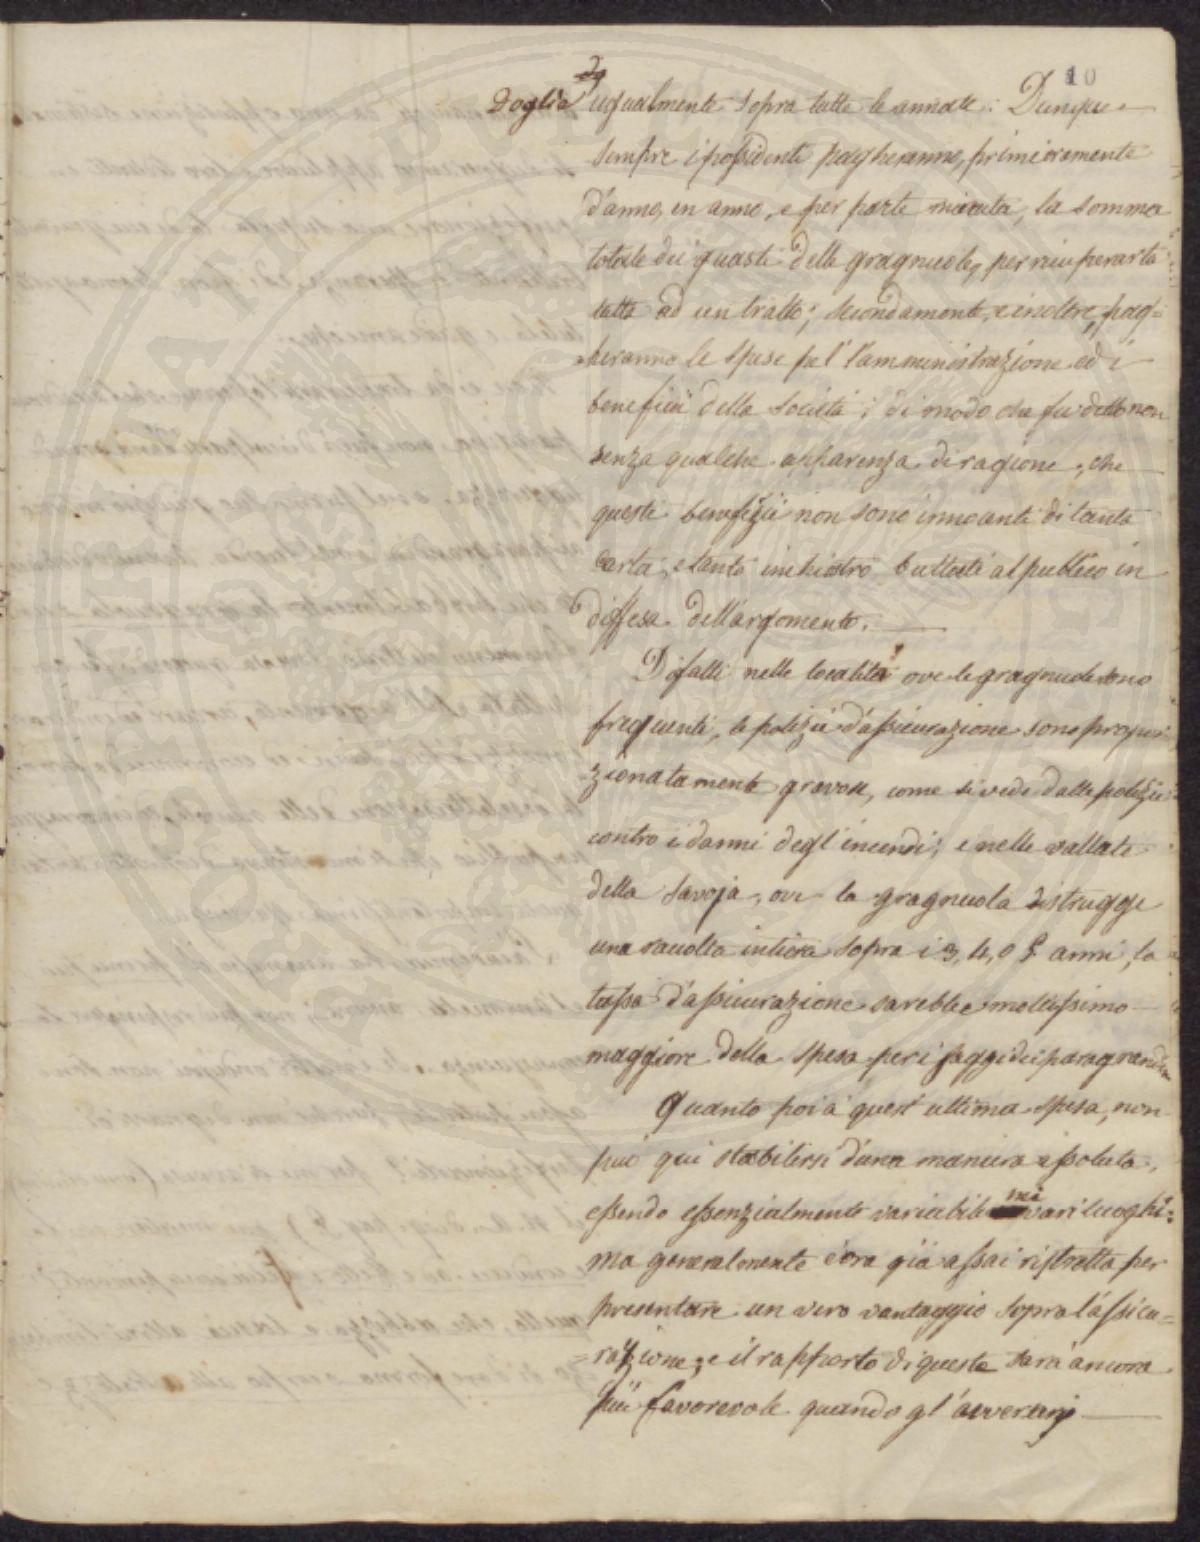 10
Doglia ugualmente sopra tutte le annate: Dunque
sempre i possidenti pagheranno, primieramente
d'anno, in anno, e per parte minuta, la somma
totale dei guasti delle gragnuole, per ricuperarla
tutta ad un tratto; secondamente, e inoltre, pag=
heranno le spese pel l'amministrazione ed i
beneficii della società; di modo che fu detto non
senza qualche apparenza di ragione, che
questi benefizii non sono innocenti di tanta
carta, e tanto inchiostro buttati al publico in
diffesa dell'argomento.
Difatti nelle località ove le gragnuole sono
frequenti, le polizii d'assicurazione sono propor
zionatamente gravose, come si vede dalle polizie
contro i danni degl'incendi; e nelle vallate
della Savoja, ove la gragnuola distrugge
una raccolta intiera sopra i 3, 4, o 5 anni, la
tassa d'assicurazione sarebbe moltissimo
maggiore della spesa per i saggi dei paragrandini
Quanto poi a quest'ultima spesa, non
può qui stabilirsi d'una maniera assoluta,
essendo essenzialmente variabile nei vari luoghi:
ma generalmente è ora già assai ristretta per
presentare un vero vantaggio sopra l'assicu=
=razione; e il rapporto di queste sarà ancora
più favorevole quando gl'avversarj